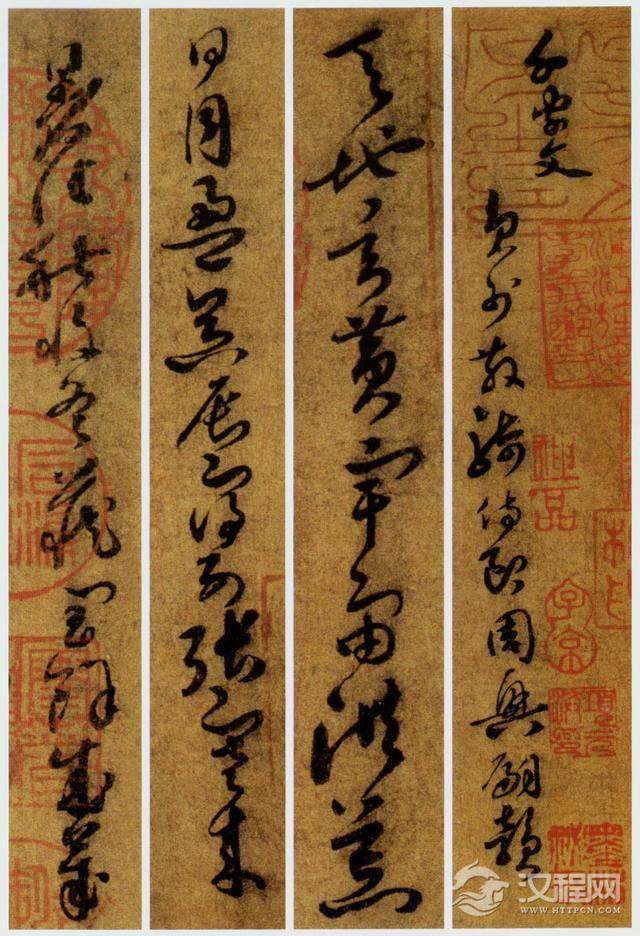 千字文
員外散騎侍郎周興嗣韻
天地玄黃宇宙洪荒
日月盈昃辰宿列張寒來
暑往秋收冬藏閏餘成歲
子京
汉程网
WWW.HTTPCN.COM